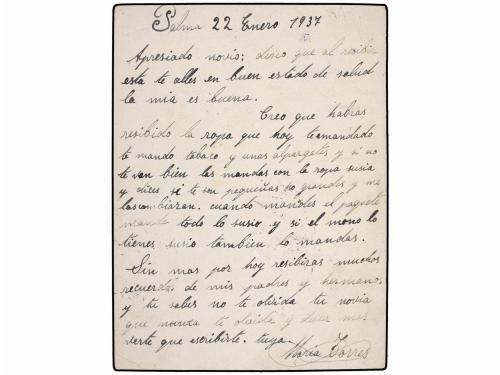 Palma 22 Enero 1937
Apresiado novio; deseo que al recibir
esta te alles en buen estado de salud
la mia es buena.
Creo que habras
resibido la ropa que hoy te mandado
te mando tabaco y unas alpargetes y si no
te van bien las mandas con la ropa susia
y dices si te son pequeñas o grandes y me
las cambiaran. cuando mandes el paquete
mande todo lo susio y si el mono lo
tienes susio tambien lo mandas.
Sin mas por hoy resibiras muchos
recuerdos de mis padres y hermano
y tu sabes no te olvida tu novia
que nunca te olvida y desea mas
verte que escribirte. tuya
Maria Torres